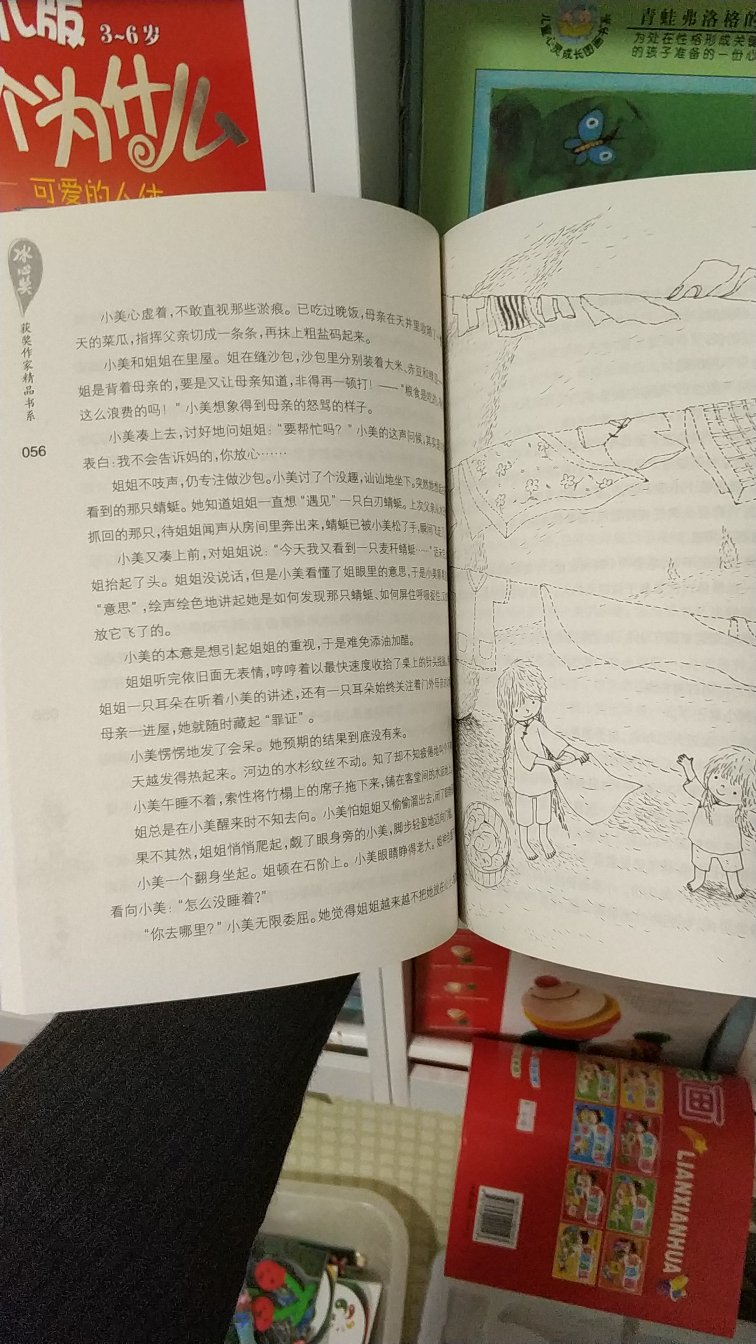 儿版 3~6岁
个为什么
可爱的人体
儿童心灵成长图画书
青蛙弗洛格的
为处在性格形成关键
的孩子准备的一份心
冰心奖
获奖作家精品书系
056
小美心虚着，不敢直视那些淤痕。已吃过晚饭，母亲在天井里收晒了一
天的菜瓜，指挥父亲切成一条条，再抹上粗盐码起来。
小美和姐姐在里屋。姐在缝沙包，沙包里分别装着大米、赤豆和绿豆
姐是背着母亲的，要是又让母亲知道，非得再一顿打！——“粮食是吃的，
这么浪费的吗！”小美想象得到母亲的怒骂的样子。
小美凑上去，讨好地问姐姐：“要帮忙吗？”小美的这声问候，其实是
表白：我不会告诉妈的，你放心……
姐姐不吱声，仍专注做沙包。小美讨了个没趣，讪讪地坐下。突然她想起
看到的那只蜻蜓。她知道姐姐一直想“遇见”一只白刃蜻蜓。上次父亲
抓回的那只，待姐姐闻声从房间里奔出来，蜻蜓已被小美松了手，瞬间飞走
小美又凑上前，对姐姐说：“今天我又看到一只麦秆蜻蜓……”话
姐抬起了头。姐姐没说话，但是小美看懂了姐眼里的意思，于是小美
“意思”，绘声绘色地讲起她是如何发现那只蜻蜓、如何屏住呼吸
放它飞了的。
小美的本意是想引起姐姐的重视，于是难免添油加醋。
姐姐听完依旧面无表情，哼哼着以最快速度收拾了桌上的针头线脑
姐姐一只耳朵在听着小美的讲述，还有一只耳朵始终关注着门外母亲的
母亲一进屋，她就随时藏起“罪证”。
小美愣愣地发了会呆。她预期的结果到底没有来。
天越发得热起来。河边的水杉纹丝不动。知了却不知疲倦地
小美午睡不着，索性将竹榻上的席子拖下来，铺在客堂间的水泥地上
姐总是在小美醒来时不知去向。小美怕姐姐又偷偷溜出去，闭了眼
果不其然，姐姐悄悄爬起，觑了眼身旁的小美，脚步轻盈地迈向门
小美一个翻身坐起。姐顿在石阶上。小美眼睛睁得老大。姐
看向小美：“怎么没睡着？”
“你去哪里？”小美无限委屈。她觉得姐姐越来越不把她放在
画
LIANXIANHUA